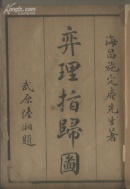 海昌施定庵先生著
弈理指歸圖
武原陸湘題